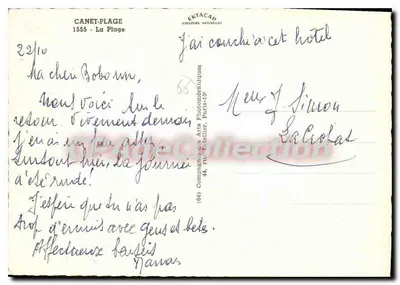 CANET-PLAGE
1555 - La Plage
EKTACAP
22/10
J'ai couché à cet hôtel
Ma chère
Nous voici sur le
retour. Vivement demain
j'en ai un peu assez
surtout hier. La journée
a été rude!
J'espère que tu n'as pas
trop d'ennuis avec gens et betes.
Affectueux baisers
Maman
(66) Compagnie des Arts Photomécaniques
44, rue Letellier, Paris-15e
Simon
La Ciotat